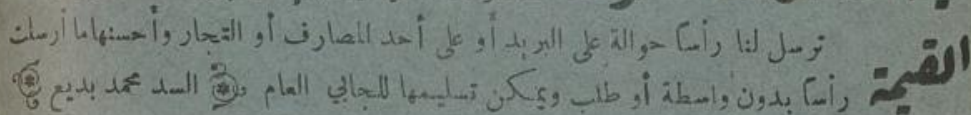 القيمة
ترسل لنا رأساً حوالة على البريد أو على أحد المصارف أو التجار وأحسنها ما أرسلت
رأساً بدون واسطة أو طلب ويمكن تسليمها للجابي العام السد محمد بديع